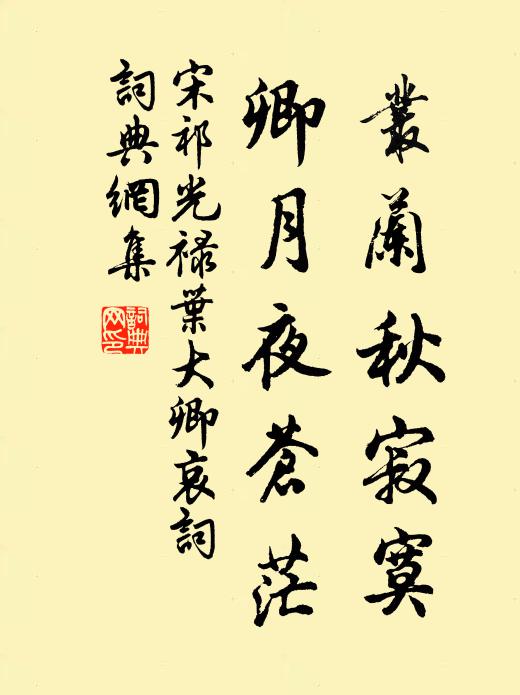 叢蘭秋寂寞
卿月夜蒼茫
宋祁光祿葉大卿哀詞
詞典網集
詞典网印